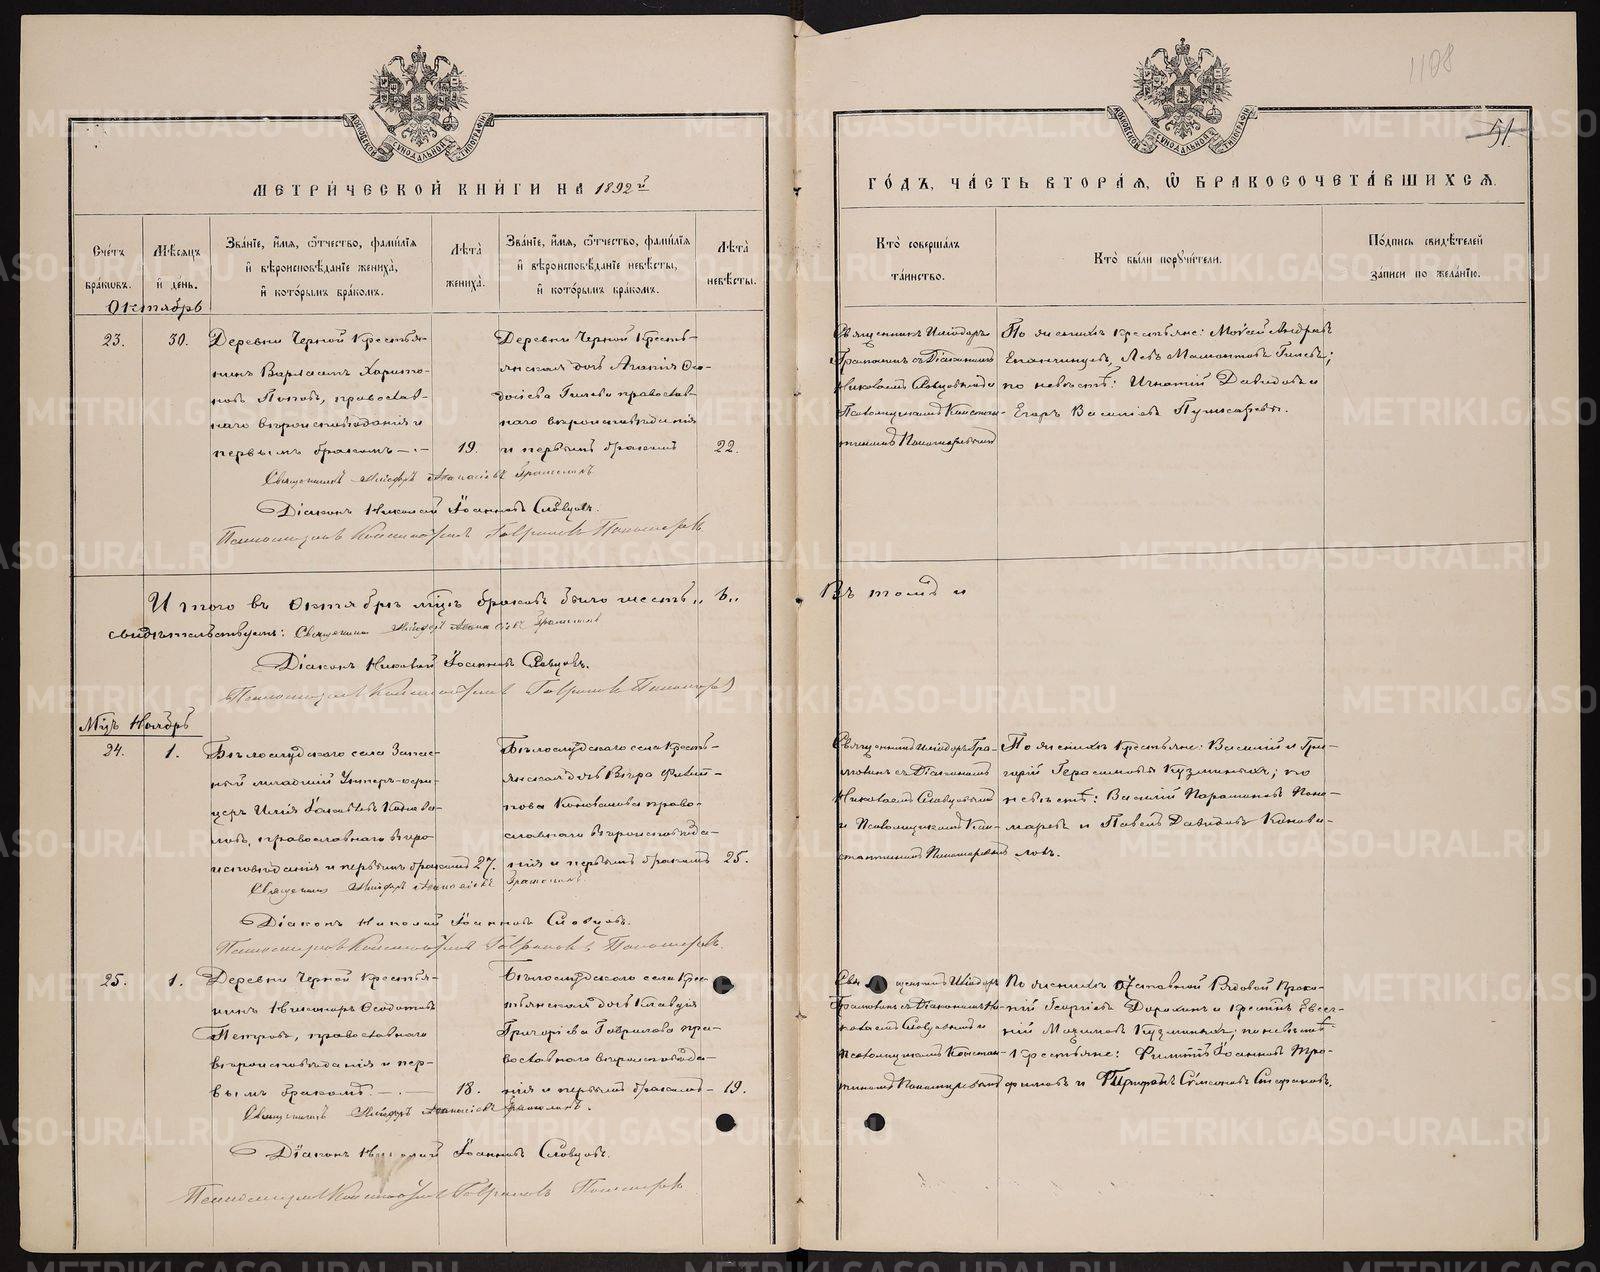 1108
51
МОСКОВСКОЙ СѴНОДАЛЬНОЙ ТИПОГРАФІИ
МОСКОВСКОЙ СѴНОДАЛЬНОЙ ТИПОГРАФІИ
МЕТРИ́ЧЕСКОЙ КНИ́ГИ НА 1892й
ГО́ДЪ, ЧА́СТЬ ВТОРА́Ѧ, Ѡ БРАКОСОЧЕТА́ВШИХСѦ.
Сче́тъ бра́ковъ.
Мѣ́сяцъ и де́нь.
Зва́нїе, и́мѧ, ѻ҆́тчество, фами́лїѧ и вѣроисповѣ́данїе жениха̀, и кото́рымъ бра́комъ.
Лѣ́та жениха̀.
Зва́нїе, и́мѧ, ѻ҆́тчество, фами́лїѧ и вѣроисповѣ́данїе невѣ́сты, и кото́рымъ бра́комъ.
Лѣ́та невѣ́сты.
Кто̀ соверша́лъ та́инство.
Кто̀ бы́ли порꙋчи́тели.
По́дпись свидѣ́телей за́писи по жела́нїю.
Октябрь
23.
30.
Деревни Черной Крестья-
нинъ Варлаамъ Харито-
новъ Поповъ, православ-
наго вѣроисповѣданія и
первымъ бракомъ
19.
Деревни Черной Кресть-
янская дочь Агапія Ѳео-
досіева Гилева православ-
наго вѣроисповѣданія
и первымъ бракомъ
22.
Священникъ Исидоръ
Грамолинъ съ Діакономъ
Николаемъ Словцовымъ и
Псаломщикомъ Констан-
тиномъ Пономаревымъ
По женихѣ крестьяне: Моѵсей Андреевъ
Епанчинцевъ, Левъ Мамонтовъ Гилевъ;
по невѣстѣ: Игнатій Давидовъ и
Егоръ Василіевъ Пушкаревы.
Священникъ Исидоръ Аѳанасіевъ Грамолинъ
Діаконъ Николай Іоанновъ Словцовъ.
Псаломщикъ Константинъ Гавриловъ Пономаревъ
Итого въ Октябрѣ мѣсяцѣ браковъ было шесть „6„ Въ томъ и
свидѣтельствуемъ: Священникъ Исидоръ Аѳанасіевъ Грамолинъ
Діаконъ Николай Іоанновъ Словцовъ.
Псаломщикъ Константинъ Гавриловъ Пономаревъ
Мцъ Ноябрь
24.
1.
Бѣлослудскаго села Запас-
ный младшій Унтеръ-офи-
церъ Илія Іаковлевъ Конова-
ловъ, православнаго вѣро
исповѣданія и первымъ бракомъ
27.
Бѣлослудскаго села Кресть-
янская дочь Вѣра Филип-
пова Коновалова право-
славнаго вѣроисповѣда-
нія и первымъ бракомъ
25.
Священникъ Исидоръ Гра-
молинъ съ Діакономъ
Николаемъ Словцовымъ
и Псаломщикомъ Кон-
стантиномъ Пономаревымъ
По женихѣ Крестьяне: Василій и Гри-
горій Герасимовы Кузминыхъ; по
невѣстѣ: Василій Парамоновъ Поно-
маревъ и Павелъ Давидовъ Конова-
ловъ.
Священникъ Исидоръ Аѳанасіевъ Грамолинъ
Діаконъ Николай Іоанновъ Словцовъ.
Псаломщикъ Константинъ Гавриловъ Пономаревъ.
25.
1.
Деревни Черной Крестья-
нинъ Никаноръ Ѳеодотовъ
Петровъ, православнаго
вѣроисповѣданія и пер-
вымъ бракомъ.
18.
Бѣлослудскаго села Крес-
тьянская дочь Клавдія
Григоріева Гаврилова пра-
вославнаго вѣроисповѣда-
нія и первымъ бракомъ
19.
Священникъ Исидоръ
Грамолинъ съ Діакономъ Ни-
колаемъ Словцовымъ и
псаломщикомъ Констан-
тиномъ Пономаревымъ
По женихѣ Отставной Рядовой Проко-
пій Георгіевъ Дорохинъ и крестьян. Евсег-
ній Максимовъ Кузминыхъ; по невѣстѣ
крестьяне: Филиппъ Іоанновъ Тро-
фимовъ и Трифонъ Симеоновъ Стафеевъ.
Священникъ Исидоръ Аѳанасіевъ Грамолинъ.
Діаконъ Николай Іоанновъ Словцовъ.
Псаломщикъ Константинъ Гавриловъ Пономаревъ
METRIKI.GASO-URAL.RU